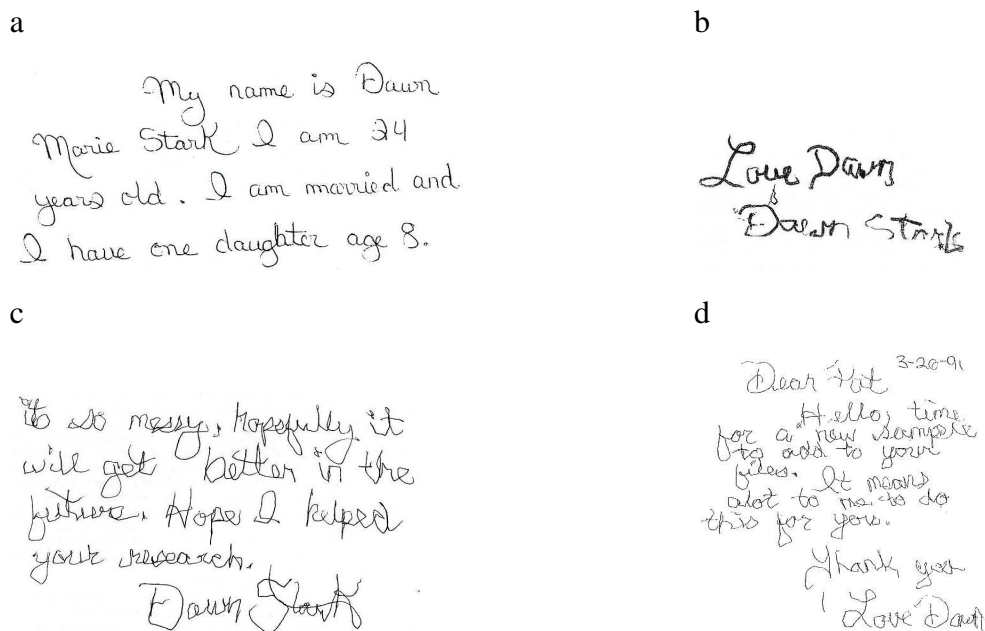 a
My name is Dawn
Marie Stark I am 24
years old. I am married and
I have one daughter age 8.
b
Love Dawn
Dawn Stark
c
so messy, hopefully it
will get better in the
future. Hope I helped
your research.
Dawn Stark
d
3-20-91
Dear Pat
Hello, time
for a new sample
to add to your
files. It means
alot to me to do
this for you.
Thank you
Love Dawn